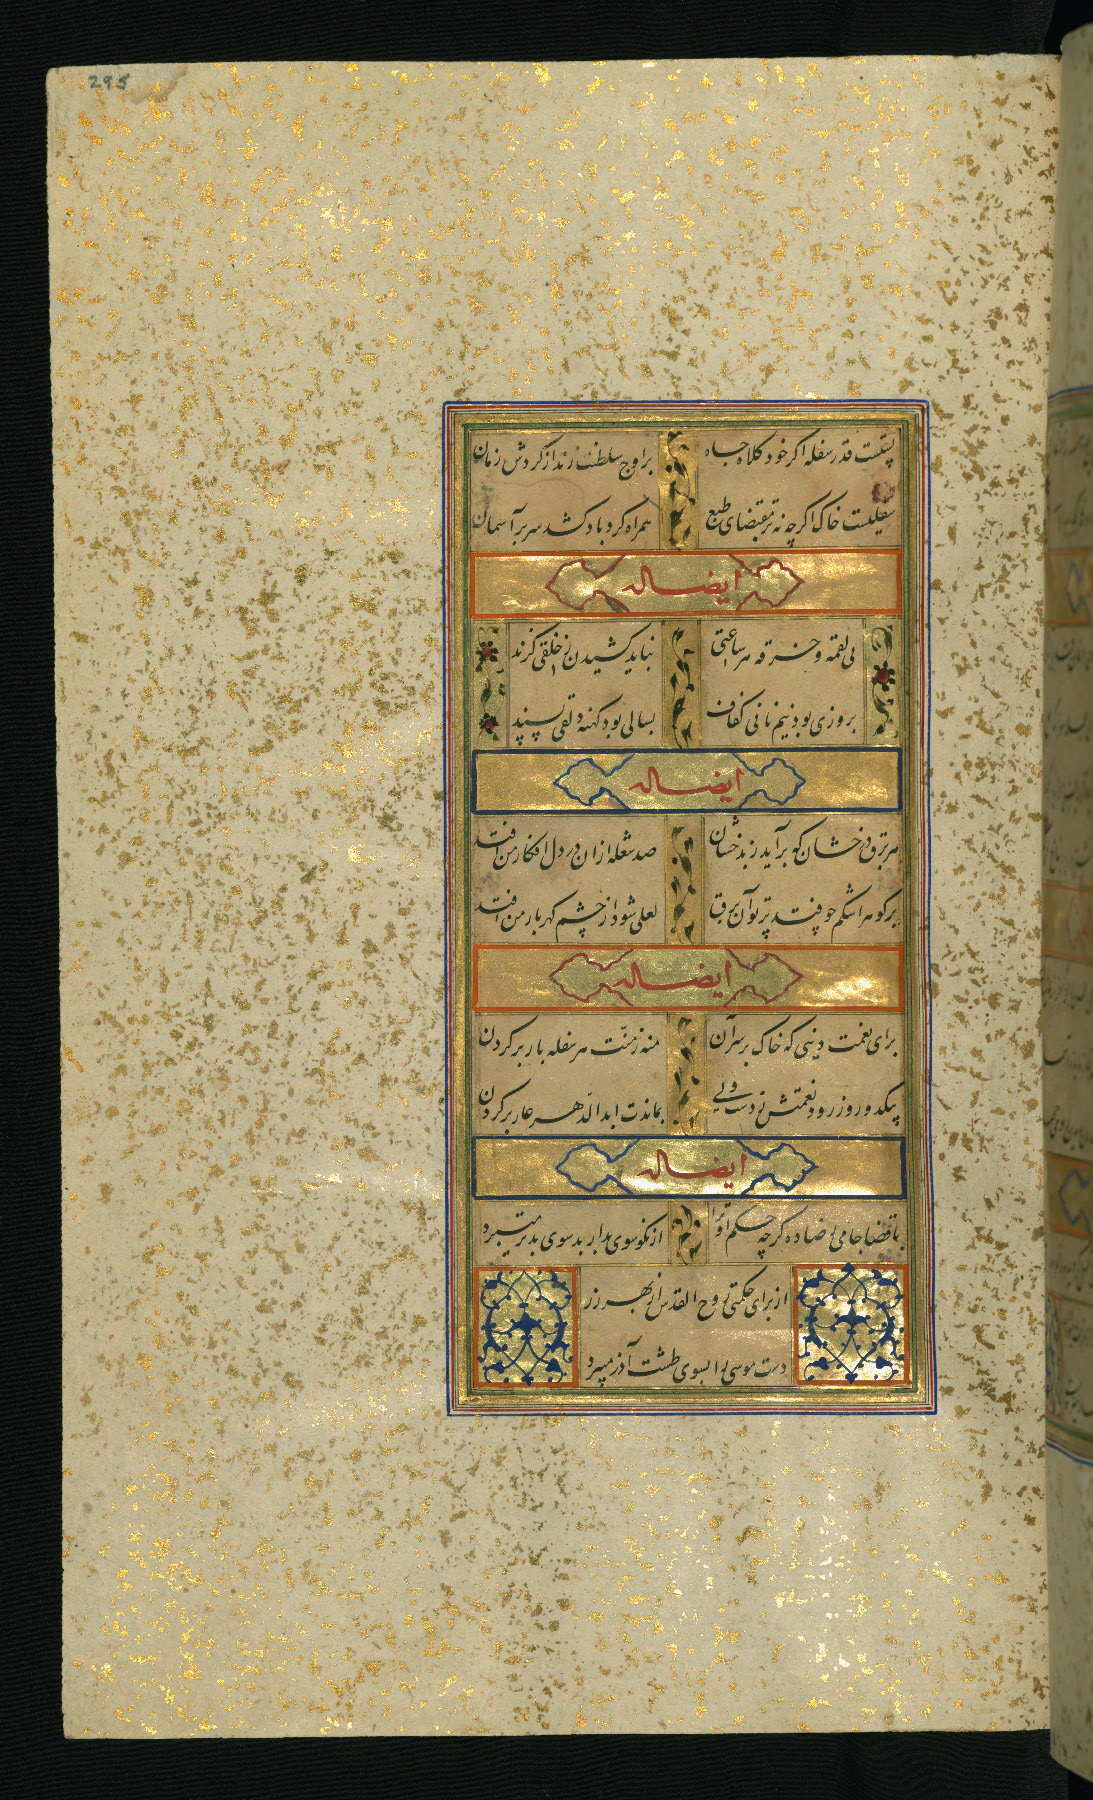 295
پستست قدر سفله اکر خود کلاه جاه
بر اوج سلطنت زند از کردش زمان
سفلیست خاک اکرچه نه بر مقتضای طبع
همراه کردباد کشد سر بر آسمان
ایضاله
بی لقمه و خرقه هر ساعتی
نباید کشیدن ز خلقی کزند
بروزی بود نیم نانی کفاف
بسالی بود کهنه دلقی پسند
ایضاله
هر برق خشان که برآید ز بدخشان
صد شعله ازان در دل افکار من افتد
بر کوهر اشکم چو فتد پرتو آن برق
لعلی شود از چشم کهربار من افتد
ایضاله
برای نعمت دنیی که خاک بر سر آن
منه ز منّت هر سفله بار بر کردن
بیکدو روز رود نعمتش ز دست ولی
بماندت ابد الدّهر عار بر کردن
ایضاله
با قضا جامی رضا ده کرچه حکم او ترا
از نکو سوی بد از بد سوی بدتر میبرد
از برای حکمتی روح القدس از بهر زر
دست موسی را بسوی طشت آذر میبرد